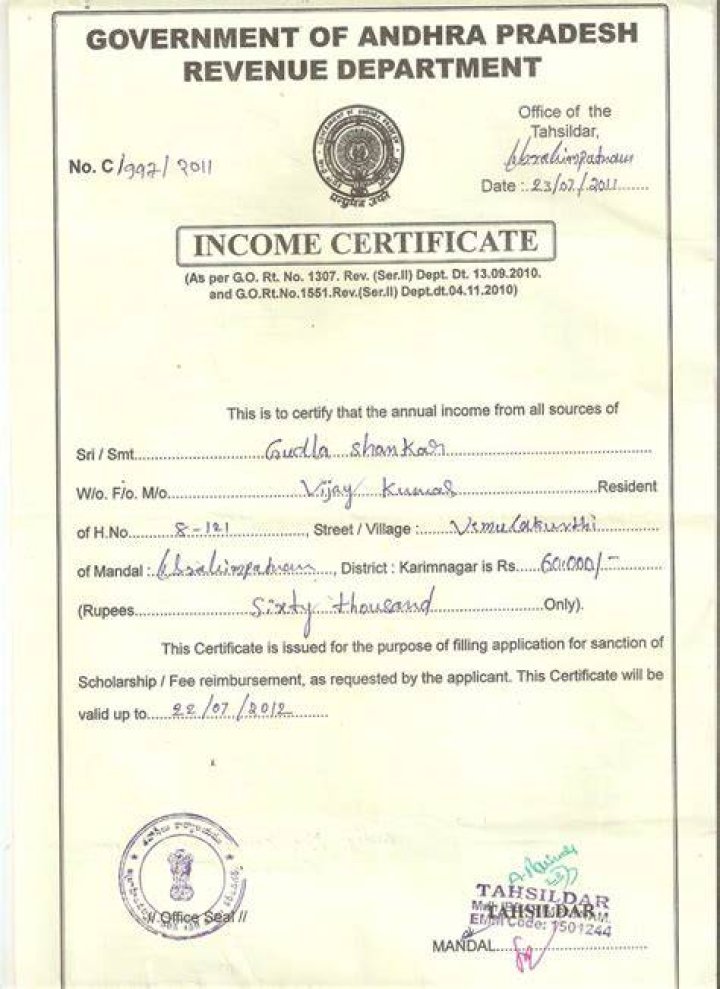 GOVERNMENT OF ANDHRA PRADESH
REVENUE DEPARTMENT
No. C/992/2011
Office of the
Tahsildar,
Ibrahimpatnam
Date : 23/07/2011
INCOME CERTIFICATE
(As per G.O. Rt. No. 1307. Rev. (Ser.II) Dept. Dt. 13.09.2010.
and G.O.Rt.No.1551.Rev.(Ser.II) Dept.dt.04.11.2010)
This is to certify that the annual income from all sources of
Sri / Smt. Gudla Shankar
W/o. F/o. M/o. Vijay Kumar Resident
of H.No. 8-121, Street / Village : Vemulakurthi
of Mandal : Ibrahimpatnam, District : Karimnagar is Rs. 60.000/-
(Rupees Sixty thousand Only).
This Certificate is issued for the purpose of filling application for sanction of
Scholarship / Fee reimbursement, as requested by the applicant. This Certificate will be
valid up to 22/07/2012
// Office Seal //
TAHSILDAR
TAHSILDAR
EMM Code: 1501244
MANDAL